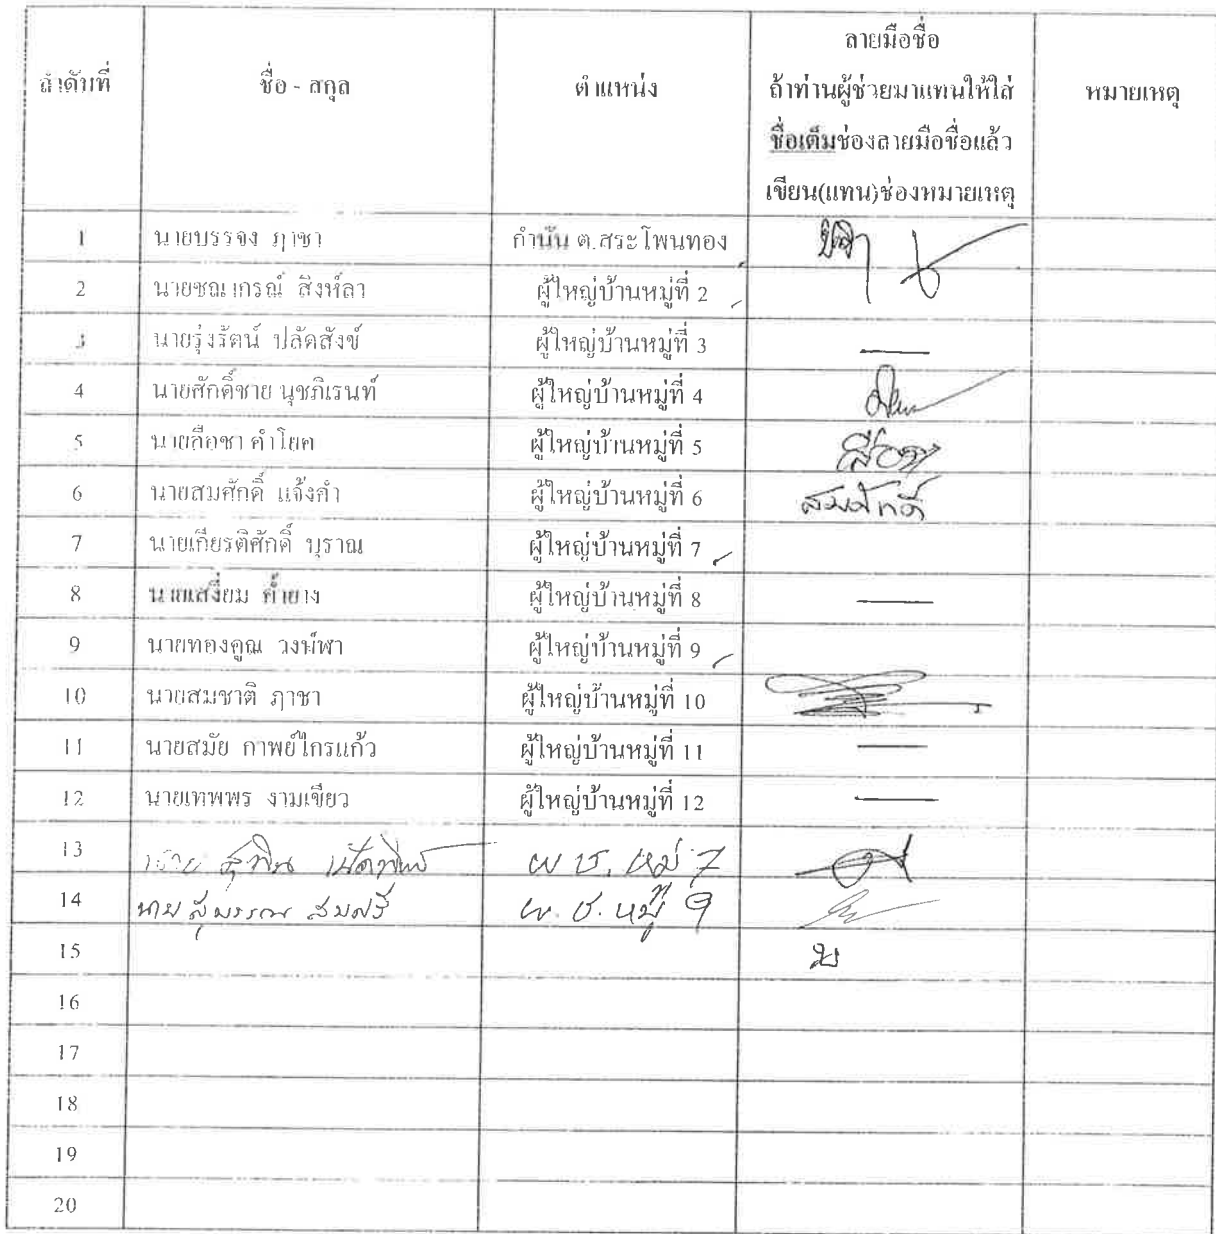 ลำดับที่ ชื่อ - สกุล ตำแหน่ง ลายมือชื่อ หมายเหตุ
ถ้าท่านผู้ช่วยมาแทนให้ใส่
ชื่อเต็มช่องลายมือชื่อแล้ว
เขียน(แทน)ช่องหมายเหตุ
1 นายบรรจง ภาชา กำนัน ต.สระโพนทอง
2 นายชณากรณ์ สิงห์ลา ผู้ใหญ่บ้านหมู่ที่ 2
3 นายรุ่งรัตน์ ปลัดสังข์ ผู้ใหญ่บ้านหมู่ที่ 3 —
4 นายศักดิ์ชาย นุชภิเรนท์ ผู้ใหญ่บ้านหมู่ที่ 4
5 นายลือชา คำโยค ผู้ใหญ่บ้านหมู่ที่ 5 ลือชา
6 นายสมศักดิ์ แจ้งคำ ผู้ใหญ่บ้านหมู่ที่ 6 สมศักดิ์
7 นายเกียรติศักดิ์ บุราณ ผู้ใหญ่บ้านหมู่ที่ 7
8 นายเสงี่ยม ค้ำยาง ผู้ใหญ่บ้านหมู่ที่ 8 —
9 นายทองคูณ วงษ์ฬา ผู้ใหญ่บ้านหมู่ที่ 9
10 นายสมชาติ ภาชา ผู้ใหญ่บ้านหมู่ที่ 10
11 นายสมัย กาพย์ไกรแก้ว ผู้ใหญ่บ้านหมู่ที่ 11 —
12 นายเทพพร งามเขียว ผู้ใหญ่บ้านหมู่ที่ 12 —
13 นาย สุทิน ผช. หมู่ 7
14 นาย สุบรรณ สมศรี ผ.ช. หมู่ 9
15
16
17
18
19
20